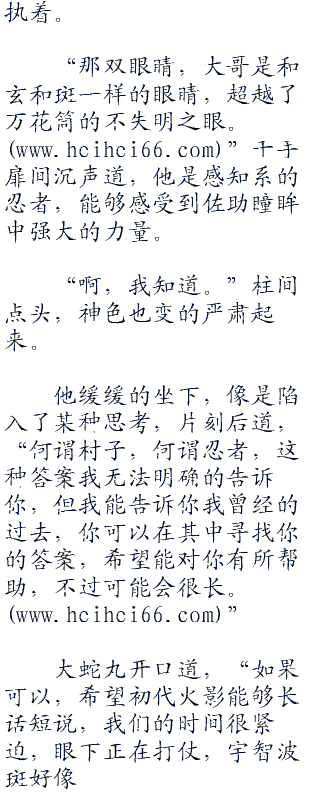 执着。
“那双眼睛，大哥是和
玄和斑一样的眼睛，超越了
万花筒的不失明之眼。
(www.hcihci66.com)”千手
扉间沉声道，他是感知系的
忍者，能够感受到佐助瞳眸
中强大的力量。
“啊，我知道。”柱间
点头，神色也变的严肃起
来。
他缓缓的坐下，像是陷
入了某种思考，片刻后道，
“何谓村子，何谓忍者，这
种答案我无法明确的告诉
你，但我能告诉你我曾经的
过去，你可以在其中寻找你
的答案，希望能对你有所帮
助，不过可能会很长。
(www.hcihci66.com)”
大蛇丸开口道，“如果
可以，希望初代火影能够长
话短说，我们的时间很紧
迫，眼下正在打仗，宇智波
斑好像